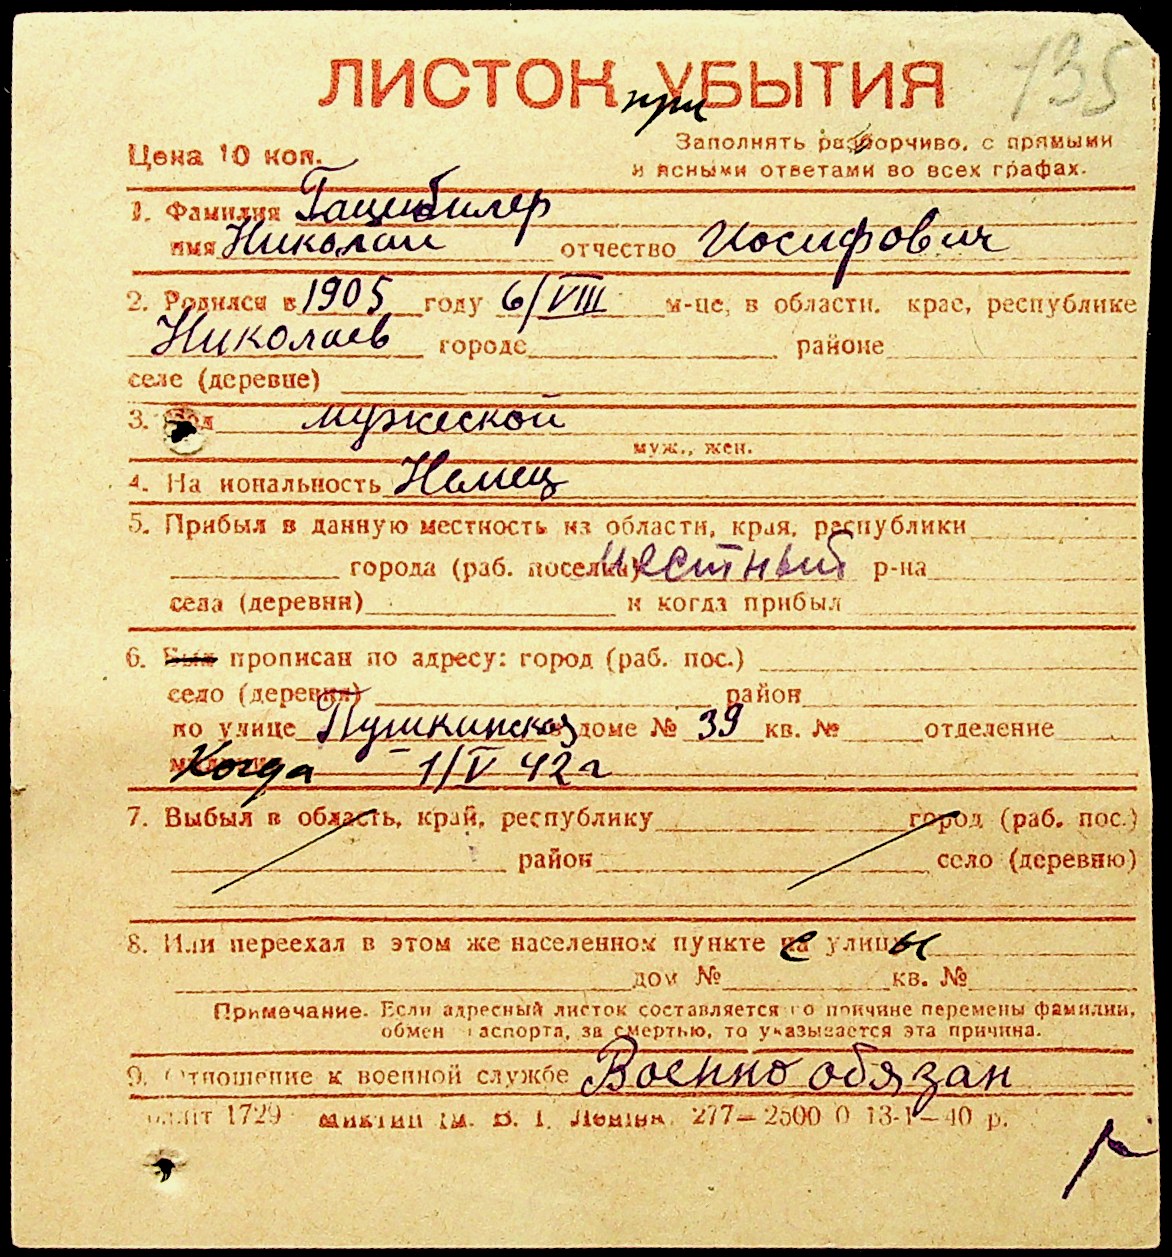 135
ЛИСТОК УБЫТИЯ
при
Цена 10 коп.
Заполнять разборчиво, с прямыми
и ясными ответами во всех графах.
1. Фамилия
имя Николай отчество Иосифович
2. Родился в 1905 году 6/VIII м-це, в области, крае, республике
Николаев городе районе
селе (деревне)
3. Пол мужеской
муж., жен.
4. На иональность Немец
5. Прибыл в данную местность из области, края, республики
города (раб. поселка) местный р-на
села (деревни) и когда прибыл
6. Был прописан по адресу: город (раб. пос.)
село (деревня) район
по улице Пушкинская доме № 39 кв. № отделение
Когда 1/V 42 г
7. Выбыл в область, край, республику город (раб. пос.)
район село (деревню)
8. Или переехал в этом же населенном пункте с улицы
дом № кв. №
Примечание. Если адресный листок составляется по причине перемены фамилии,
обмен паспорта, за смертью, то указывается эта причина.
9. Отношение к военной службе Военно обязан
1729 277—2500 0 13-I—40 р.